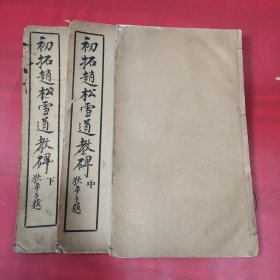 初拓趙松雪道教碑 中
狄平子題
初拓趙松雪道教碑 下
狄平子題